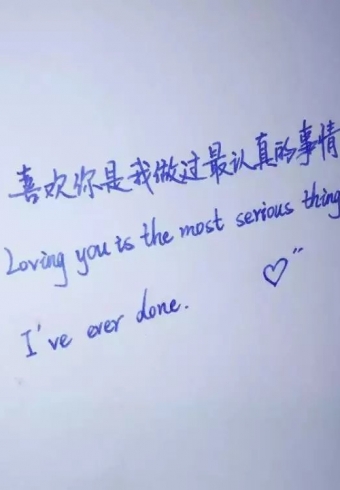 喜欢你是我做过最认真的事情
Loving you is the most serious thing
I've ever done.